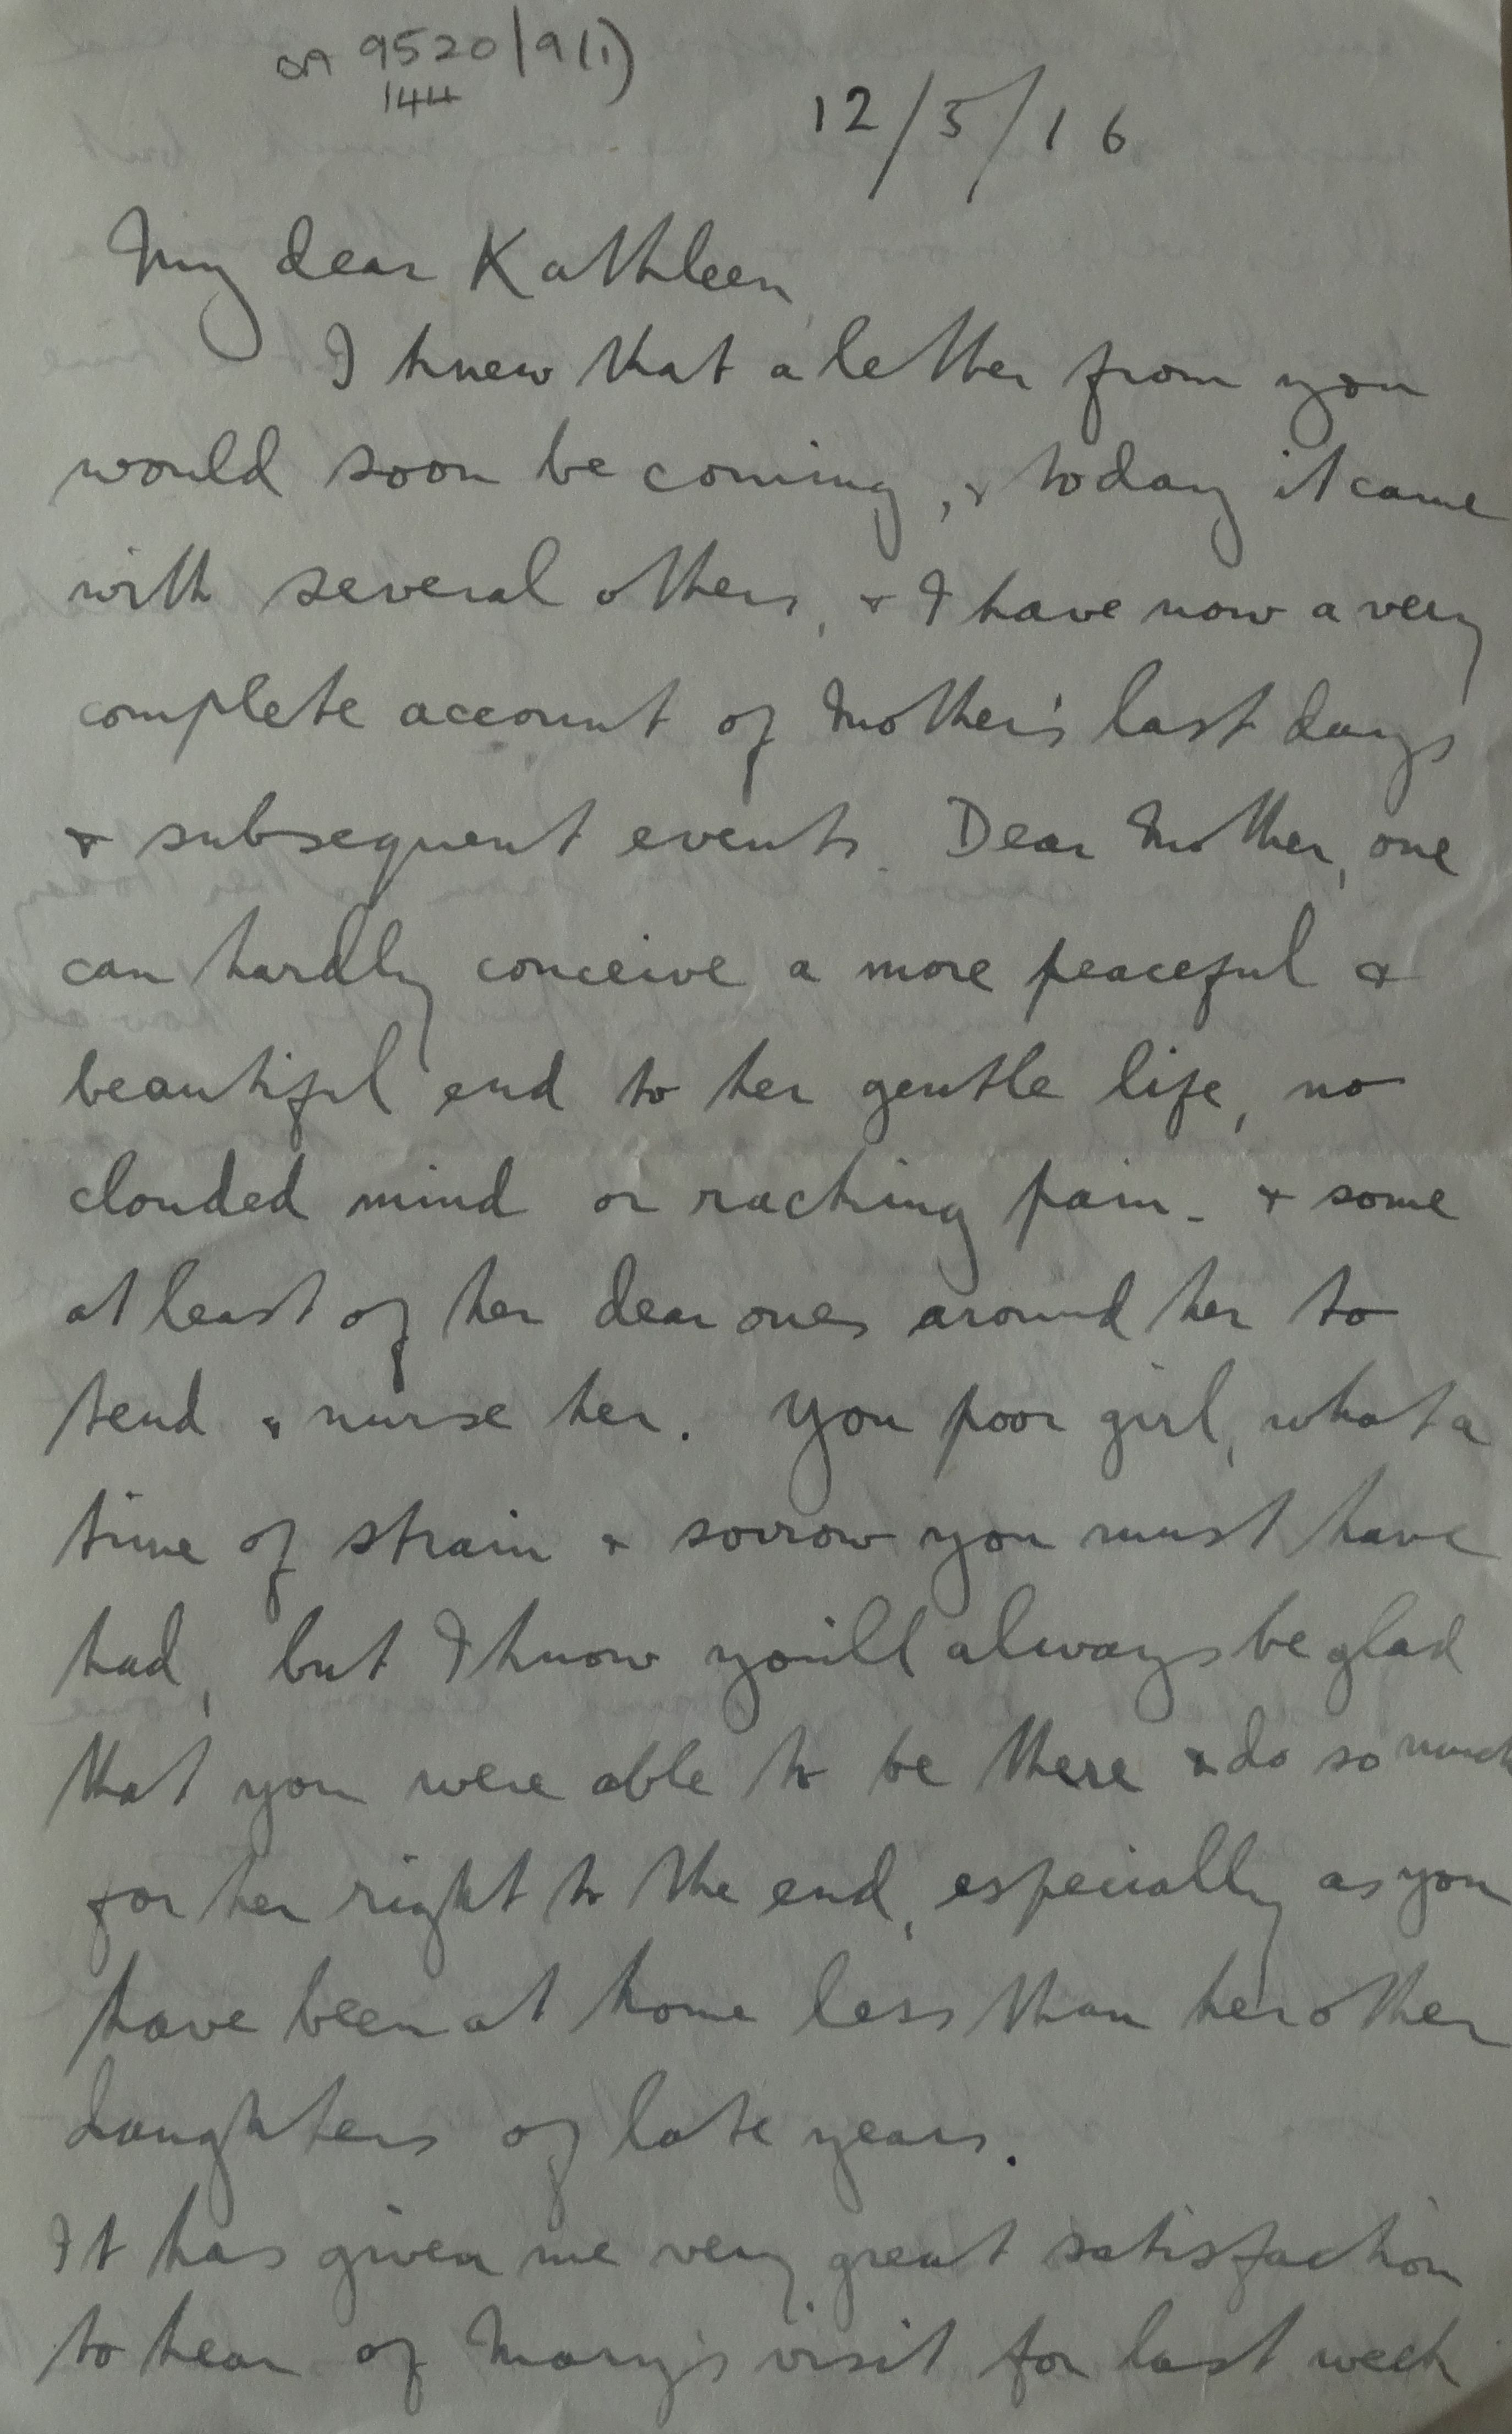 OA 9520/9(1)
144
12/5/16
My dear Kathleen,
I knew that a letter from you
would soon be coming, & today it came
with several others, & I have now a very
complete account of Mother's last days
& subsequent events. Dear Mother, one
can hardly conceive a more peaceful &
beautiful end to her gentle life, no
clouded mind or racking pain - & some
at least of her dear ones around her to
tend & nurse her. You poor girl, what a
time of strain & sorrow you must have
had, but I know you'll always be glad
that you were able to be there & do so much
for her right to the end, especially as you
have been at home less than her other
daughters of late years.
It has given me very great satisfaction
to hear of Mary's visit for last week